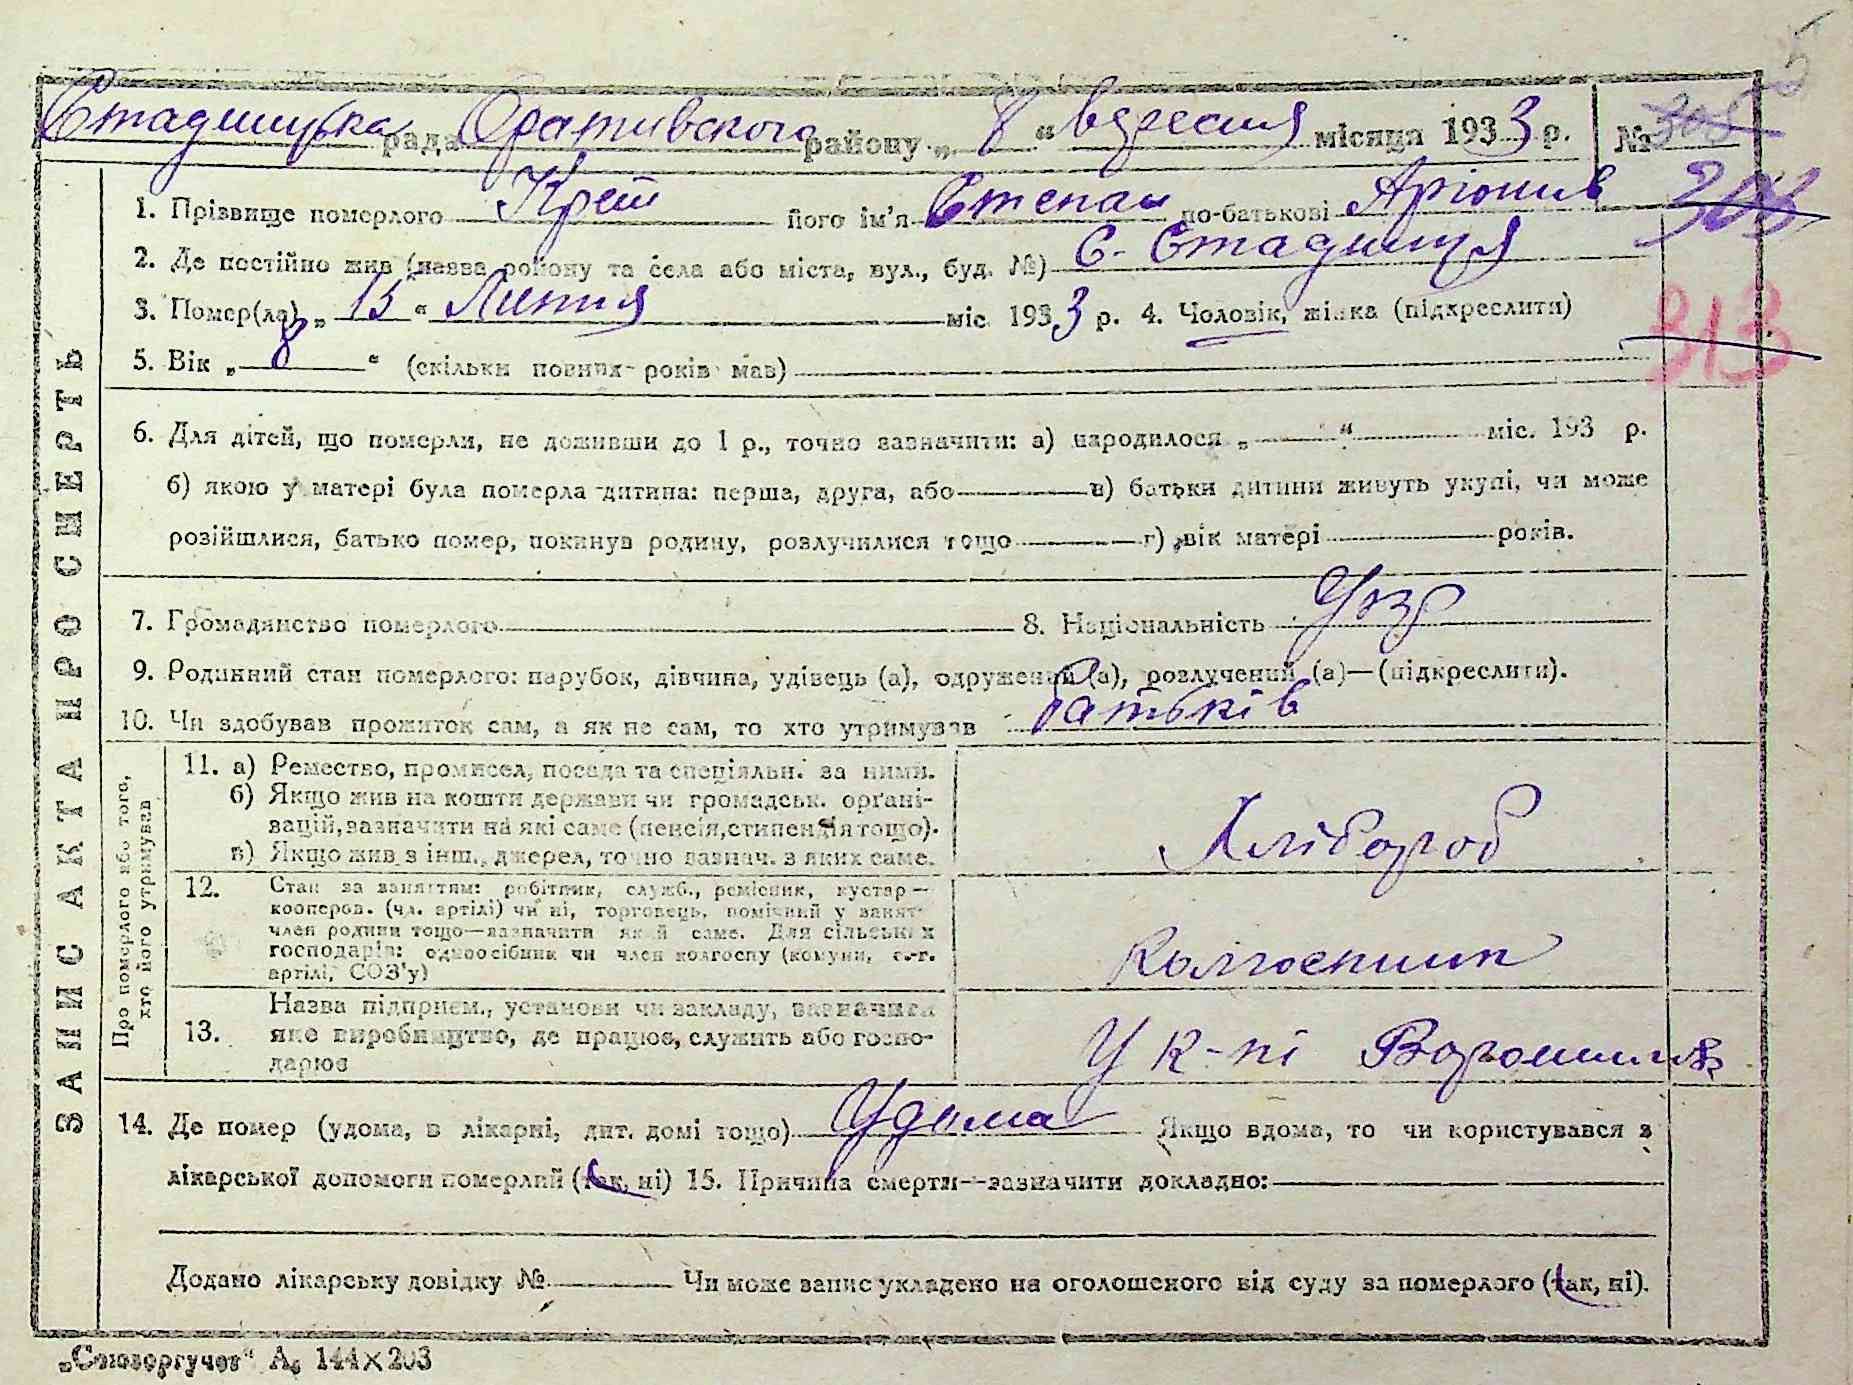 5
Стадницька рада Оратівського району „ 8 “ вересня місяця 1933 р. № 308
1. Прізвище померлого Крет його ім'я Степан по-батькові 303
2. Де постійно жив (назва району та села або міста, вул., буд. №) С. Стадниця
3. Помер(ла) „ 15 “ Липня міс 1933 р. 4. Чоловік, жінка (підкреслити)
313
5. Вік „ 8 “ (скільки повних років мав)
6. Для дітей, що померли, не доживши до 1 р., точно зазначити: а) народилося „ “ міс. 193 р.
б) якою у матері була померла дитина: перша, друга, або в) батьки дитини живуть укупі, чи може
розійшлися, батько помер, покинув родину, розлучилися тощо г) вік матері років.
7. Громадянство померлого 8. Національність Укр
9. Родинний стан померлого: парубок, дівчина, удівець (а), одружений (а), розлучений (а)—(підкреслити).
10. Чи здобував прожиток сам, а як не сам, то хто утримував Батьків
ЗАПИС АКТА ПРО СМЕРТЬ
Про померлого або того,
хто його утримував
11. а) Ремество, промисел, посада та спеціяльн. за ними.
б) Якщо жив на кошти держави чи громадськ. орґані-
зацій, зазначити на які саме (пенсія, стипендія тощо).
в) Якщо жив з інш. джерел, точно зазнач. з яких саме.
Хлібороб
12. Стан за заняттям: робітник, служб., ремісник, кустар—
кооперов. (чл. артілі) чи ні, торговець, помічний у занят.
член родини тощо—зазначити який саме. Для сільських
господарів: одноосібник чи член колгоспу (комуни, с.-г.
артілі, СОЗ'у)
Колгоспник
13. Назва підприєм., установи чи закладу, зазначити
яке виробництво, де працює, служить або госпо-
дарює
У к-пі Ворошилов
14. Де помер (удома, в лікарні, дит. домі тощо) Удома Якщо вдома, то чи користувався з
лікарської допомоги померлий (так, ні) 15. Причина смерти—зазначити докладно:
Додано лікарську довідку № Чи може запис укладено на оголошеного від суду за померлого (так, ні).
„Союзоргучет“ А₆ 144×203